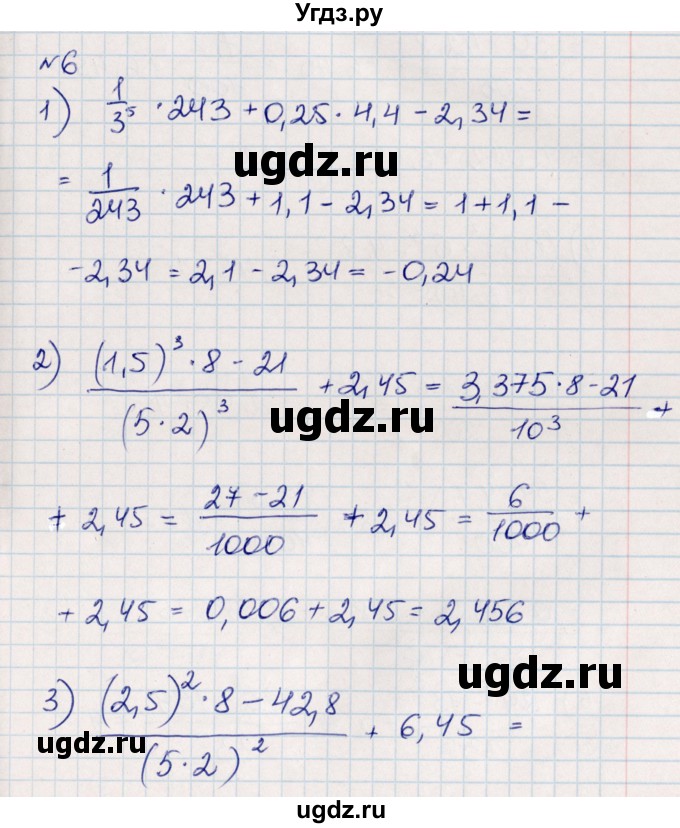 Угдз.ру
№6
1) 1/3⁵ · 243 + 0,25 · 4,4 − 2,34 =
ugdz.ru
= 1/243 · 243 + 1,1 − 2,34 = 1 + 1,1 −
− 2,34 = 2,1 − 2,34 = −0,24
2) ((1,5)³ · 8 − 21)/(5 · 2)³ + 2,45 = (3,375 · 8 − 21)/10³ +
ugdz.ru
+ 2,45 = (27 − 21)/1000 + 2,45 = 6/1000 +
+ 2,45 = 0,006 + 2,45 = 2,456
ugdz.ru
3) ((2,5)² · 8 − 42,8)/(5 · 2)² + 6,45 =
ugdz.ru
ugdz.ru